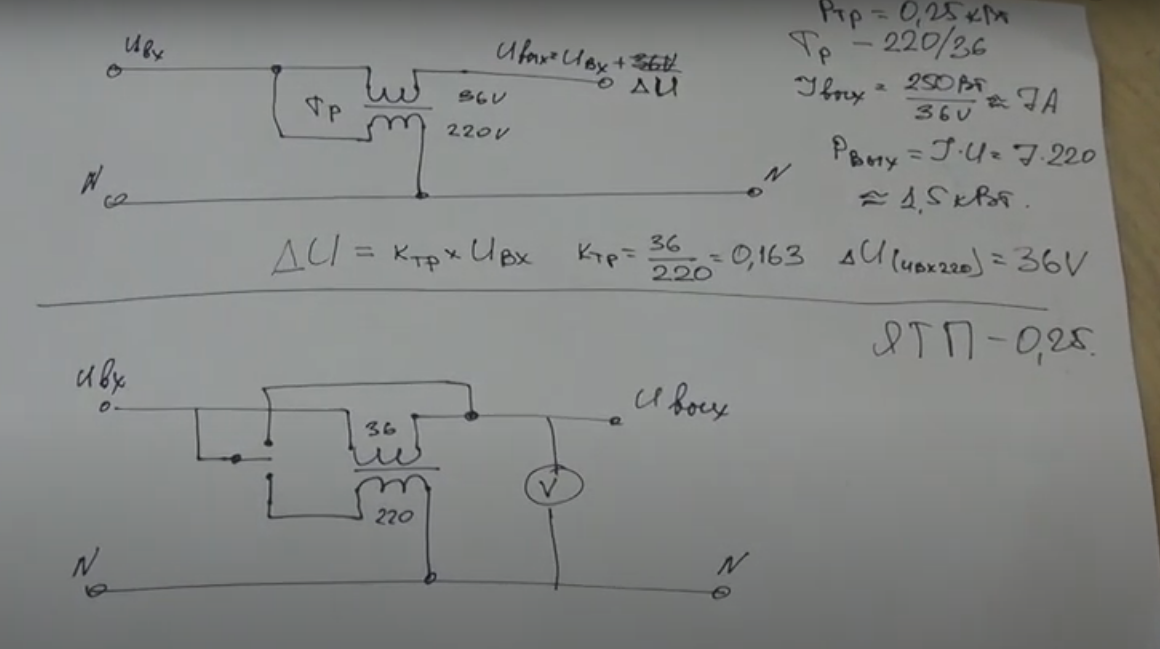 Pтр = 0,25 кВт
Тр - 220/36
Iвых = 250Вт/36V ≈ 7A
Pвых = I·U = 7·220
≈ 1,5 кВт.
Uвх
Uвых = Uвх + 36V
ΔU
Тр
36V
220V
N
N
ΔU = Kтр × Uвх Kтр = 36/220 = 0,163 ΔU(Uвх220) = 36V
ЯТП - 0,25.
Uвх
Uвых
36
V
220
N
N